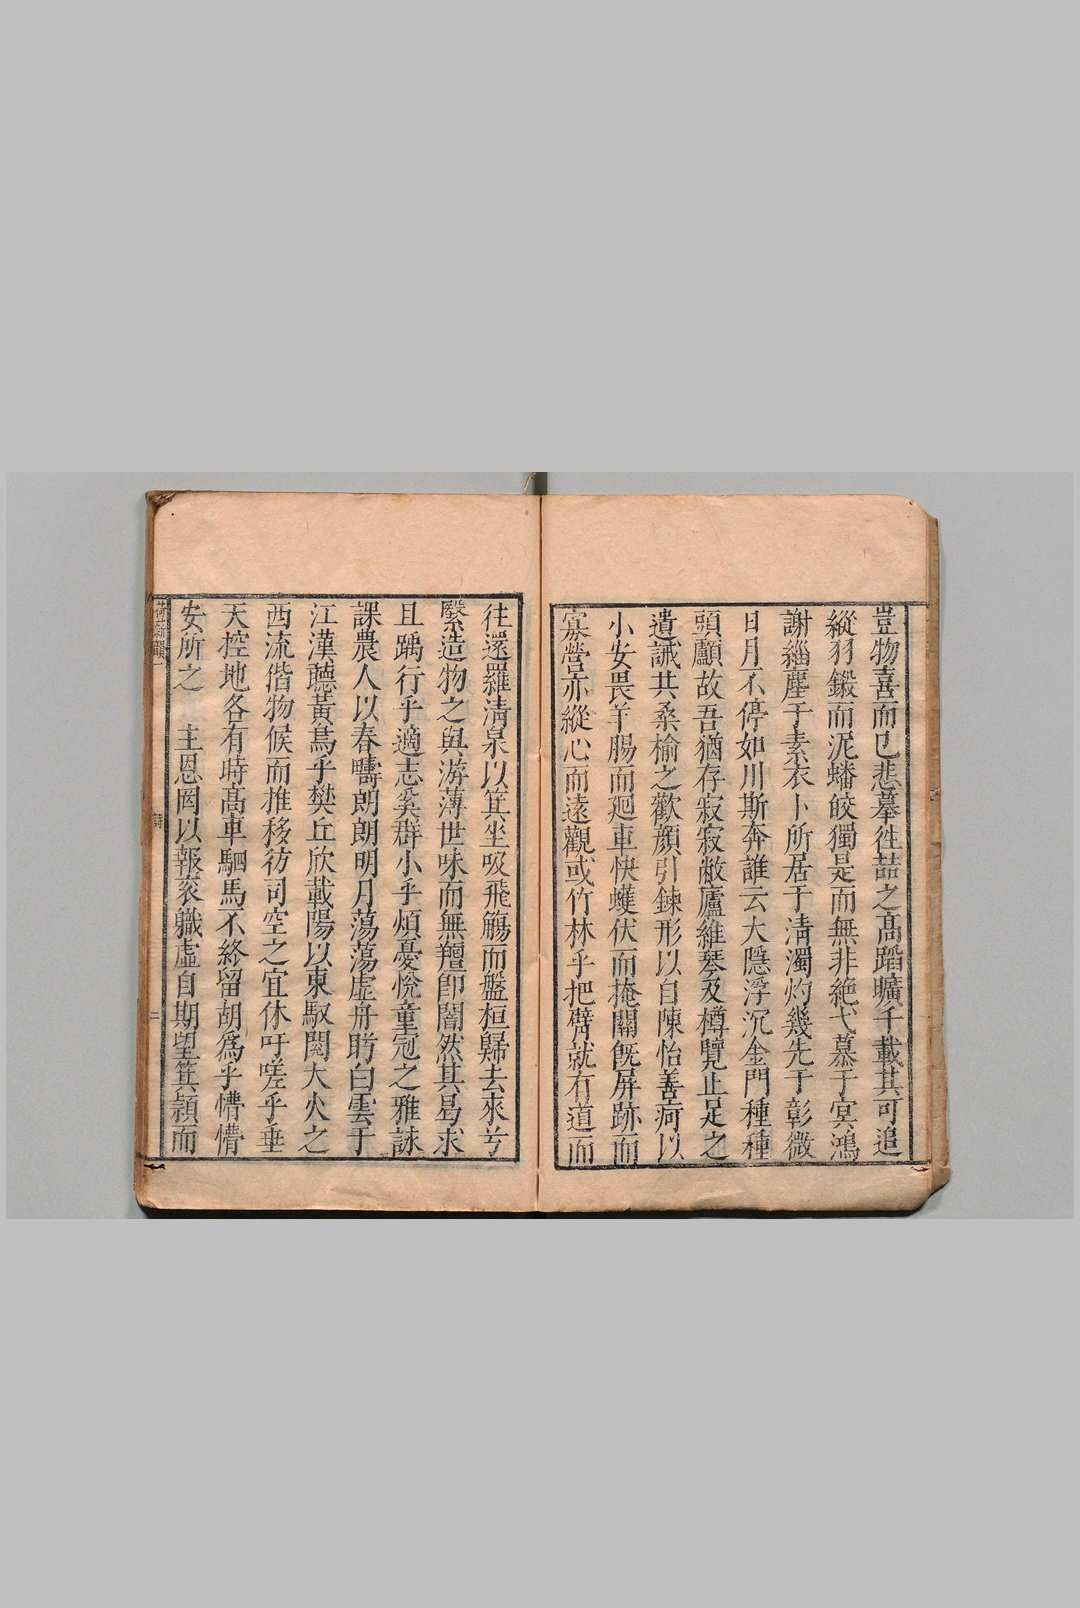 豈物喜而已悲摹徃喆之高蹈曠千載其可追
縱羽鎩而泥蟠皎獨是而無非絶弋慕于冥鴻
謝緇塵于素衣卜所居于清濁灼幾先于彰微
日月不停如川斯奔誰云大隱浮沉金門種種
頭顱故吾猶存寂寂敝廬維琴及樽覽止足之
遺誡共桑榆之歡顔引鍊形以自陳怡善病以
小安畏羊腸而廻車快蠖伏而掩關旣屏跡而
寡營亦縱心而遠觀或竹林乎把臂就有道而
往還羅清泉以箕坐吸飛觴而盤桓歸去來兮
繄造物之與游薄世味而無羶卽闇然其曷求
且踽行乎適志奚群小乎煩憂悅童冠之雅詠
課農人以春疇朗朗明月蕩蕩虛舟盻白雲于
江漢聽黃鳥乎樊丘欣載陽以東馭閱大火之
西流偕物候而推移彷司空之宜休吁嗟乎垂
天控地各有時高車駟馬不終留胡爲乎懵懵
安所之　主恩罔以報衮軄虛自期望箕頴而